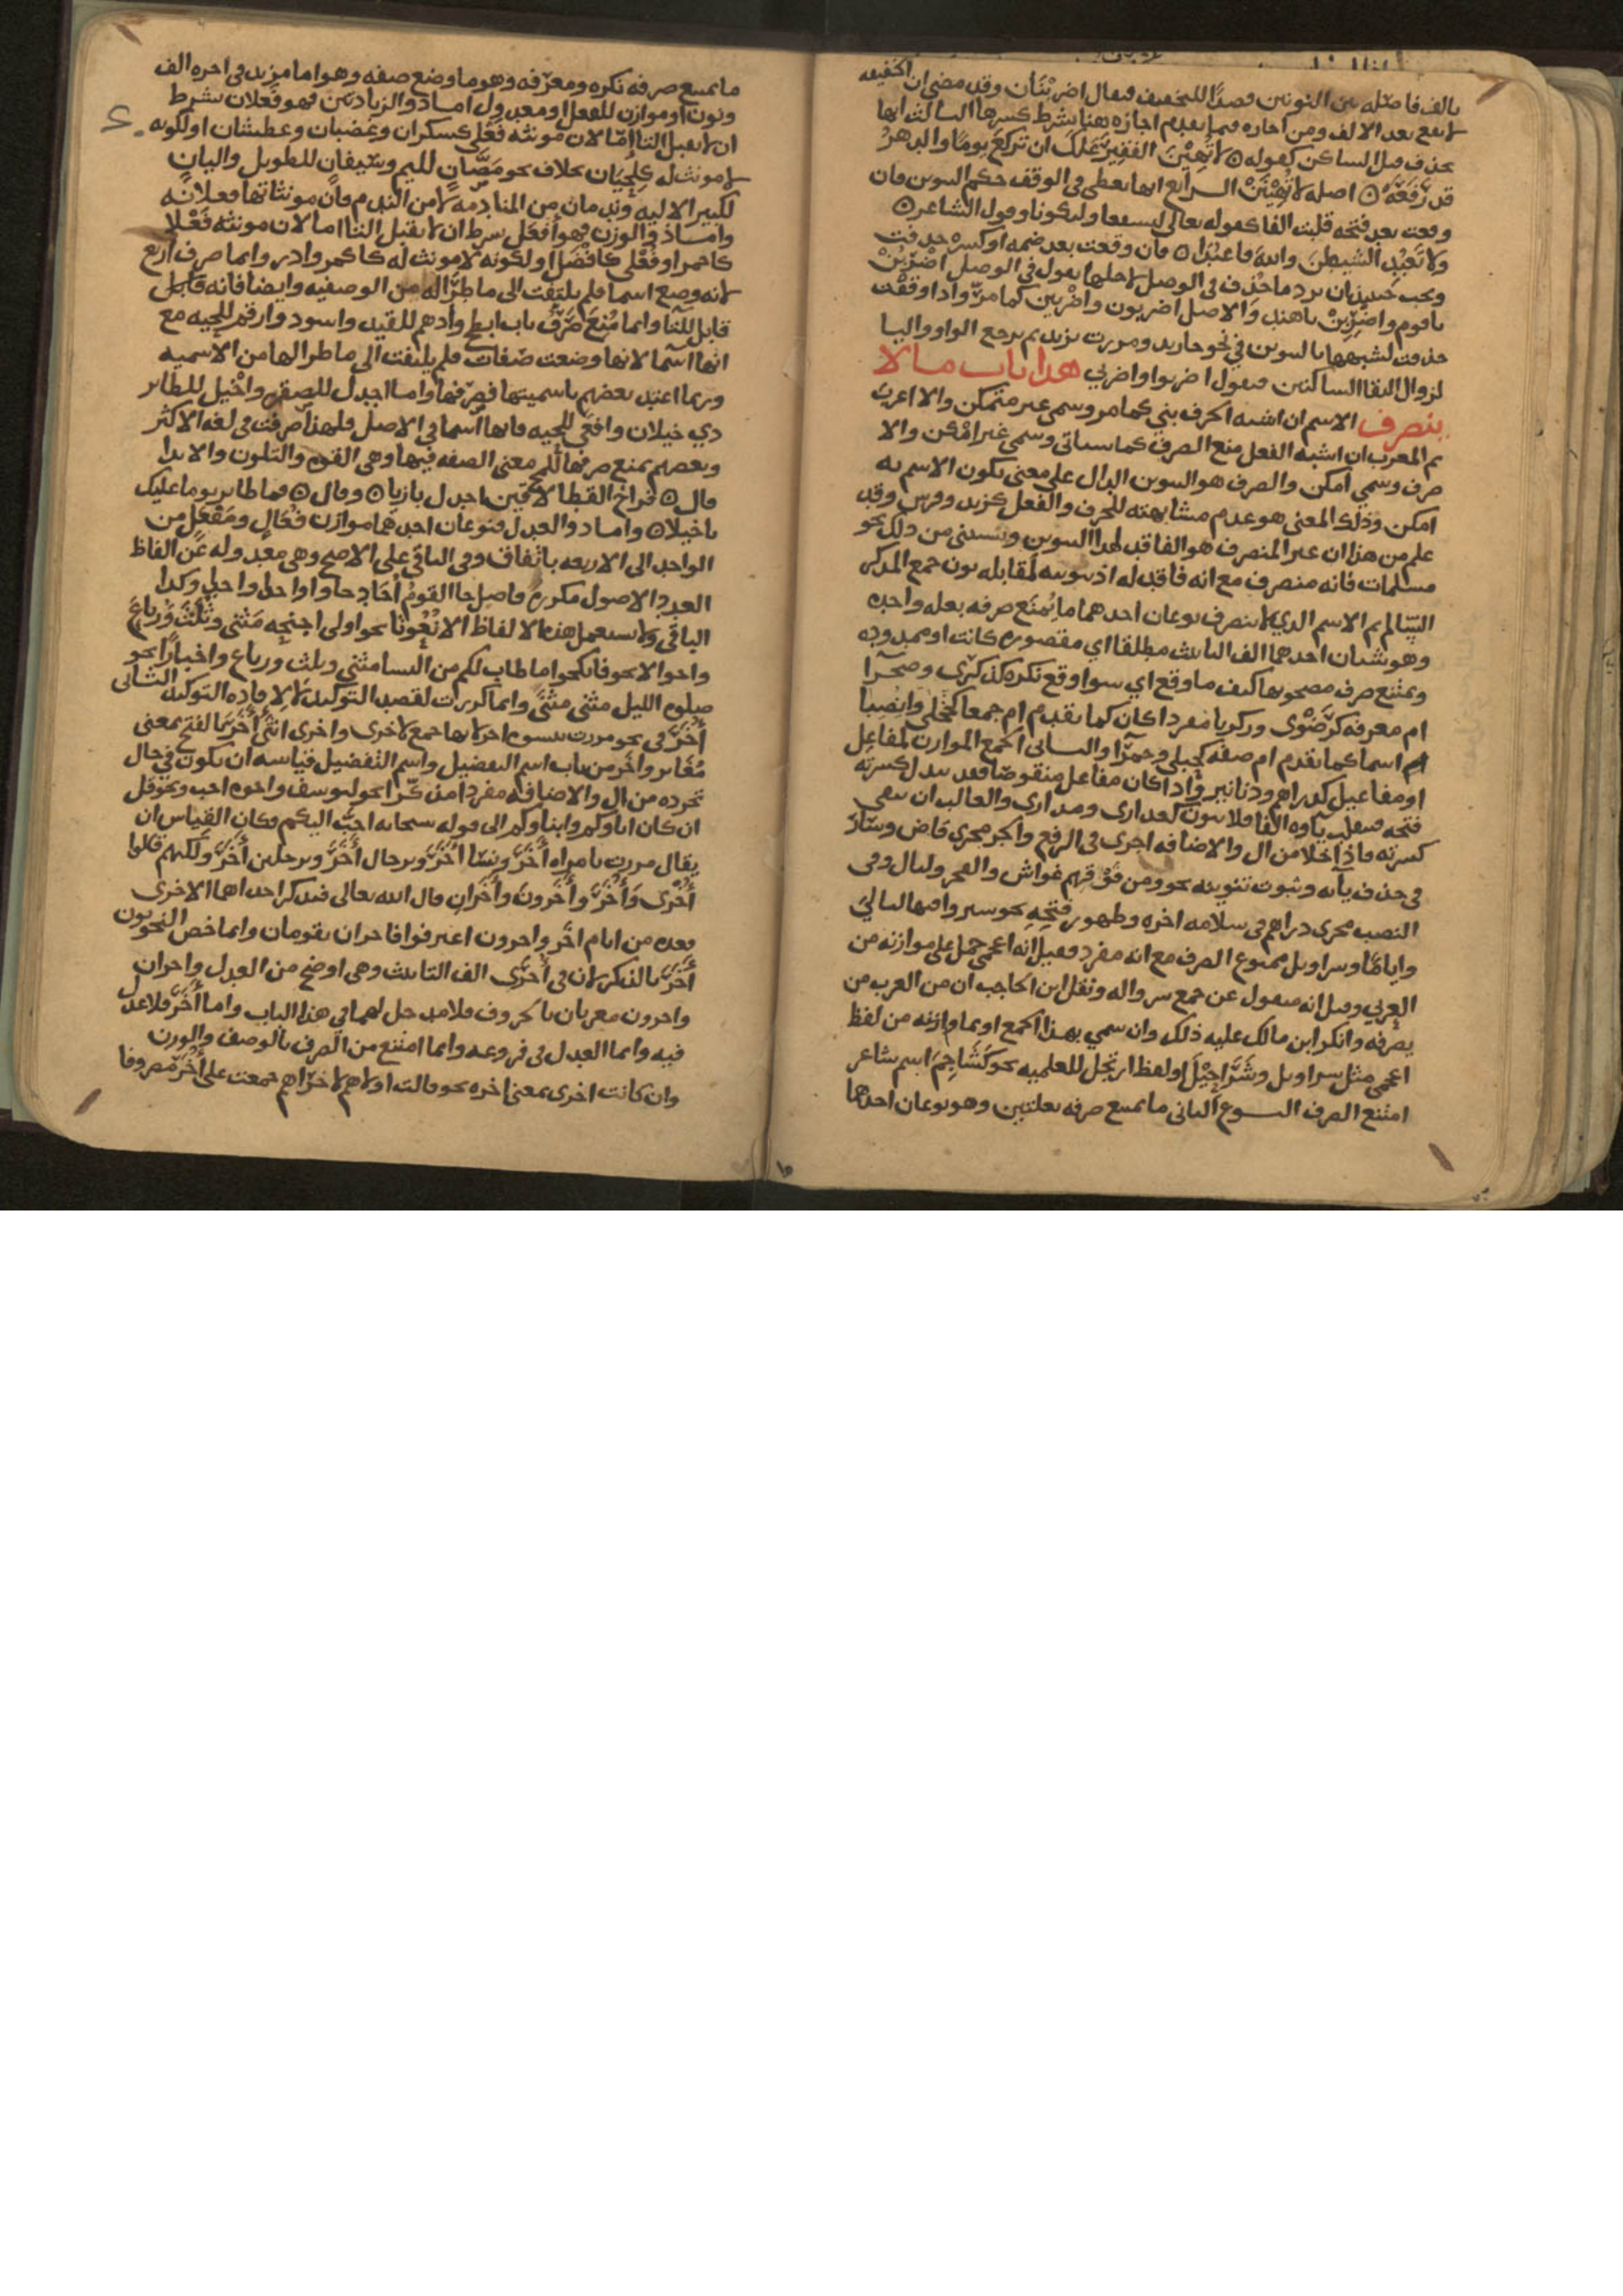 بالف فاصله بين النونين قصدا للتخفيف فيقال اضربنان وقد مضى ان الخفيفه
لا تقع بعد الالف ومن اجازه فيما تقدم اجازه هنا بشرط كسرها الثالث انها
تحذف قبل الساكن كقوله ۞ لا تُهينَ الفقير عَلك ان تركع يومًا والدهرُ
قد رَفَعَهْ ۞ اصله لا تُهينَنْ الرابع انها تعطى في الوقف حكم التنوين فان
وقعت بعد فتحه قلبت الفا كقوله تعالى لنسفعا وليكونا وقول الشاعر ۞
ولا تَعبُدِ الشيطنَ واللهَ فاعبُدا ۞ فان وقعت بعد ضمه او كسره حذفت
ويجب حينيذ ان يرد ما حُذف في الوصل لاجلها يقول في الوصل اضرِبُنْ
يا قوم واضرِبِنْ يا هند والاصل اضربون واضربين كما مرّ واذا وقفت
حذفت لشبهها بالتنوين في نحو جا زيد ومررت بزيد ثم يرجع الواو واليا
لزوال التقا الساكنين فيقول اضربوا واضربي هدا باب ما لا
ينصرف الاسم ان اشبه الحرف بني كما مر وسمي غير متمكن والا اعرب
ثم المعرب ان اشبه الفعل منع الصرف كما سياتي وسمي غير امكن والا
صرف وسمي امكن والصرف هو التنوين الدال على معنى يكون الاسم به
امكن وذلك المعنى هو عدم مشابهته للحرف والفعل كزيد وفرس وقد
علم من هذا ان غير المنصرف هو الفاقد لهدا التنوين ويستثنى من ذلك نحو
مسلمات فانه منصرف مع انه فاقد له اذ تنوينه لمقابله نون جمع المذكر
السّالم ثم الاسم الدي لا ينصرف نوعان احدهما ما يُمنَع صرفه بعله واحده
وهو شيان احدهما الف التانيث مطلقا اي مقصوره كانت او ممدوده
ويمتنع صرف مصحوبها كيف ما وقع اي سوا وقع نكره كذكرى وصحرآ
ام معرفه كرَضْوى وزكريا مفردا كان كما تقدم ام جمعا كحجلى وانصبا
ام اسما كما تقدم ام صفه كحبلى وحمرآ والثاني الجمع الموازن لمفاعِل
او مفاعيل كدراهم ودنانير واذا كان مفاعل منقوصا فقد تبدل كسرته
فتحه فتنقلب ياؤه الفا فلا ينون كعدارى ومدارى والغالب ان تبقى
كسرته فاذا خلا من ال والاضافه اجرى في الرفع والجر مجرى قاض وسارٍ
في حذف يآئه وثبوت تنوينه نحو ومن فوقهم غواش والفجر وليال وفي
النصب مجرى دراهم في سلامه اخره وظهور فتحِه نحو سيروا فيها ليالي
واياما وسراويل ممنوع الصرف مع انه مفرد فقيل انه اعجمي حمل على موازنه من
العربي وقيل انه منقول عن جمع سرواله ونقل ابن الحاجب ان من العرب من
يصرفه وانكر ابن مالك عليه ذلك وان سمي بهذا الجمع او بما وازنه من لفظ
اعجمى مثل سراويل وشَرَاحِيْلَ او لفظ ارتجل للعلميه نحو كَشَاجِمَ اسم شاعر
امتنع الصرف النوع الثاني ما يمنع صرفه بعلتين وهو نوعان احدهما
ما يمنع صرفه نكره ومعرفه وهو ما وضع صفه وهو اما مزيد في اخره الف
ونون او موازن للفعل او معدول اما ذو الزيادتين فهو فَعلان بشرط
ان لا يقبل التا امّا لان مونثه فَعْلى كسكران وغضبان وعطشان او لكونه
لا مونث له كلحيَان بخلاف نحو مَصّانٍ لليم وسَيفانٍ للطويل واليانٍ
لكبير الاليه وندمان من المنادمه لا من الندم فان مونثاتها فعلانه
واما ذو الوزن فهو أفعَل بشرط ان لا يقبل التا اما لان مونثه فَعْلا
كاحمر او فُعْلى كافضل او لكونه لا مونث له كاكمر وادر وانما صرف اربع
لانه وضع اسما فلم يلتفت الى ما طرا له من الوصفيه وايضا فانه قابل
قابل للتا وانما مُنِعَ صَرفُ باب ابطح وادهم للقيد واسود وارقم للحيه مع
انها اسما لانها وضعت صفات فلم يلتفت الى ما طرا لها من الاسميه
وربما اعتد بعضهم باسميتها فصرفها واما اجدل للصقر واخيل للطاير
دي خيلان وافعى للحيه فانها اسما في الاصل فلهذا صرفت في لغه الاكثر
وبعضهم يمنع صرفها للمح معنى الصفه فيها وهي القوه والتلون والايذا
قال ۞ فراخ القطا لاقين اجدل بازيا ۞ وقال ۞ فما طايري يوما عليك
باخيلا ۞ واما ذو العدل فنوعان احدهما موازن فُعَالٍ ومَفْعَلٍ من
الواحد الى الاربعه باتفاق وفي الباقي على الاصح وهى معدوله عن الفاظ
العدد الاصول مكررهً فاصل جا القومُ أُحَادَ جاوا واحدا واحدا وكدا
الباقي ولا تستعمل هذه الالفاظ الا نُعُوتا نحو اولى اجنحه مَثنى وثلث ورباعَ
واحوالا نحو فانكحوا ما طاب لكم من النسا مثنى وثلث ورباع واخبارا نحو
صلوه الليل مثنى مثنى وانما كررت لقصد التوكيد لا لافادِه التوكيد الثانى
أُخَر في نحو مررت بنسوه اخر لانها جمع لاخرى واخرى انثى أخَر بالفتح بمعنى
مُغاير واخَر من باب اسم التفضيل واسم التفضيل قياسه ان يكون في حال
تجرده من ال والاضافه مفردا مذكّرا نحو ليوسف واخوه احب ونحو قل
ان كان اباوكم وابناوكم الى قوله سبحانه احبَّ اليكم فكان القياس ان
يقال مررت بامراه أخَر ونسا اخَر وبرجال أخَر وبرجلين أخَر ولكنهم قالوا
أُخْرى وَأُخَر وأخَرونَ وأخَرانِ قال الله تعالى فتذكر احداهما الاخرى
فعده من ايام اخَر واخرون اعترفوا فاخران يقومان وانما خص النحويون
أُخَر بالذكر لان في أُخْرى الف التانيث وهى اوضح من العدل واخران
واخرون معربان بالحروف فلا مدخل لهما في هذا الباب واما أخَر فلا عدل
فيه وانما العدل في فروعه وانما امتنع من الصرف بالوصف والوزن
وان كانت اخرى بمعنى اخره نحو قالت اولاهم لاخراهم جمعت على أُخَر مصروفا